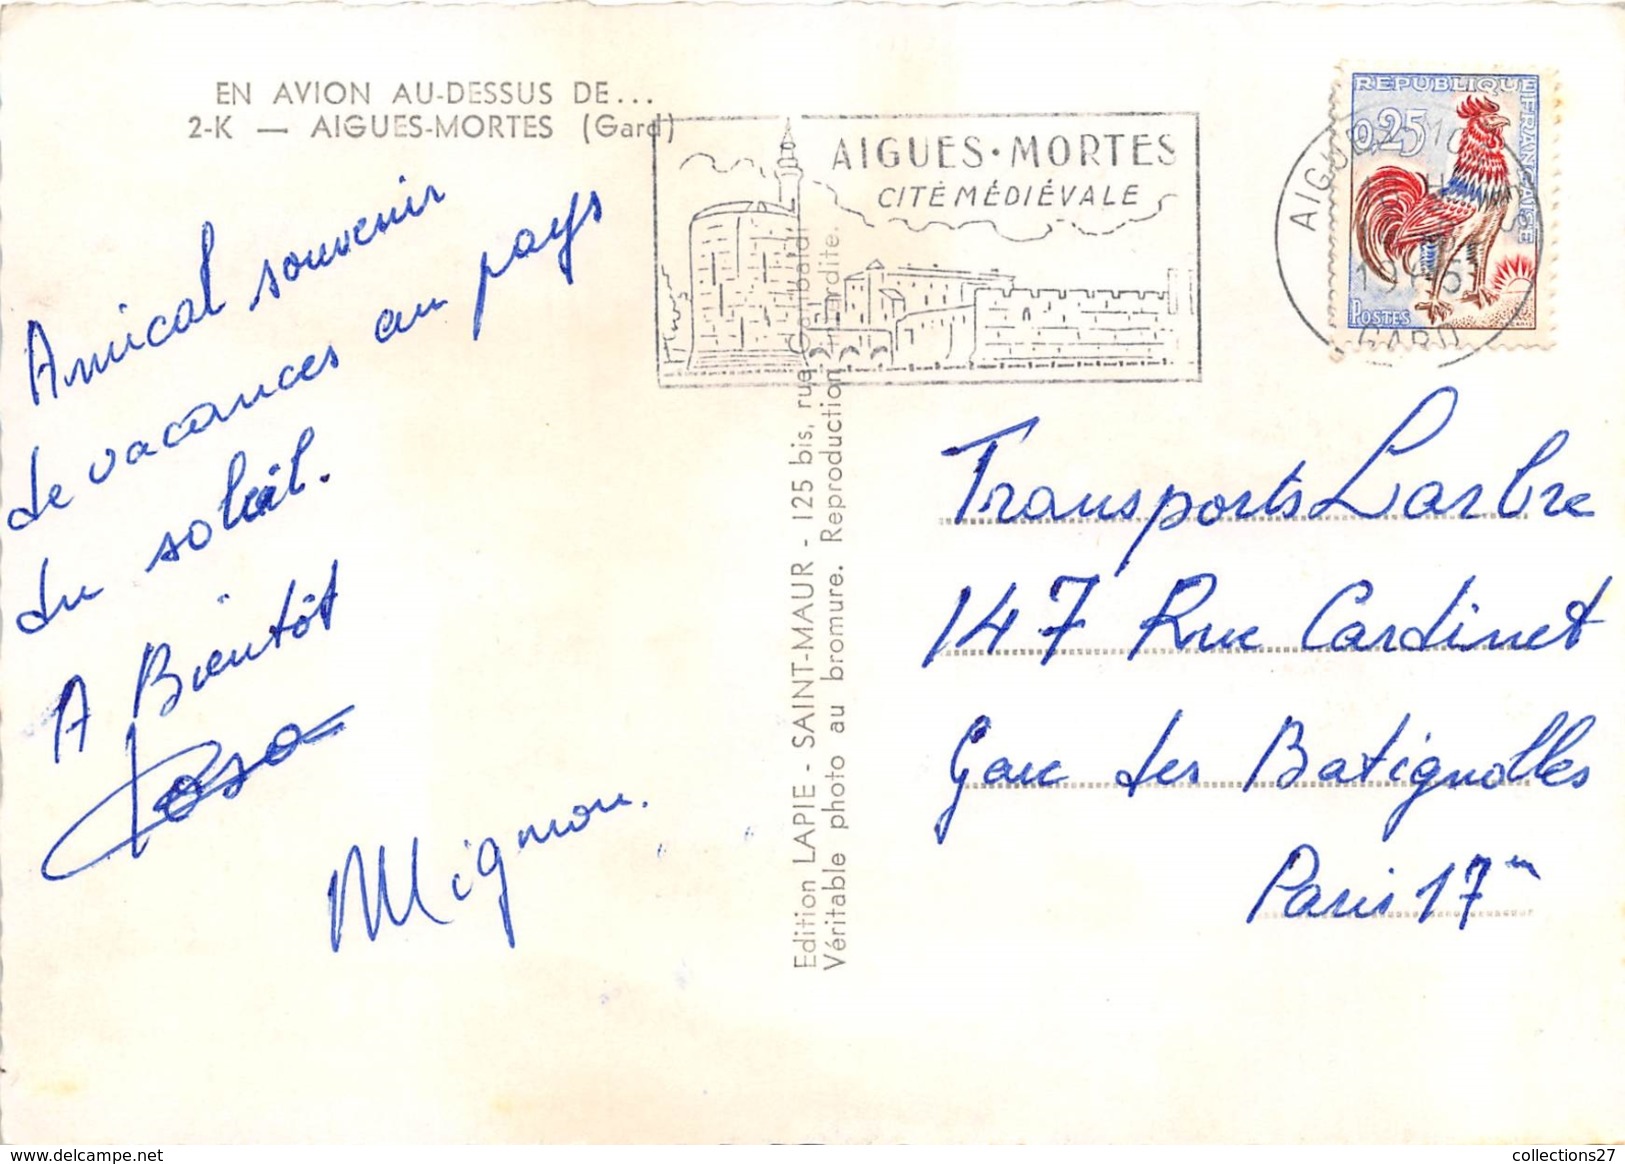 EN AVION AU-DESSUS DE...
2-K — AIGUES-MORTES (Gard)
AIGUES·MORTES
CITÉ MÉDIÉVALE
REPUBLIQUE FRANÇAISE
0,25
POSTES
GARD
Amical souvenir
de vacances au pays
du soleil.
A Bientôt
Mignon.
Edition LAPIE - SAINT-MAUR - 125 bis, rue Garibaldi
Véritable photo au bromure. Reproduction interdite.
Transports Larbre
147 Rue Cardinet
Gare des Batignolles
Paris 17m
delcampe.net
collections27